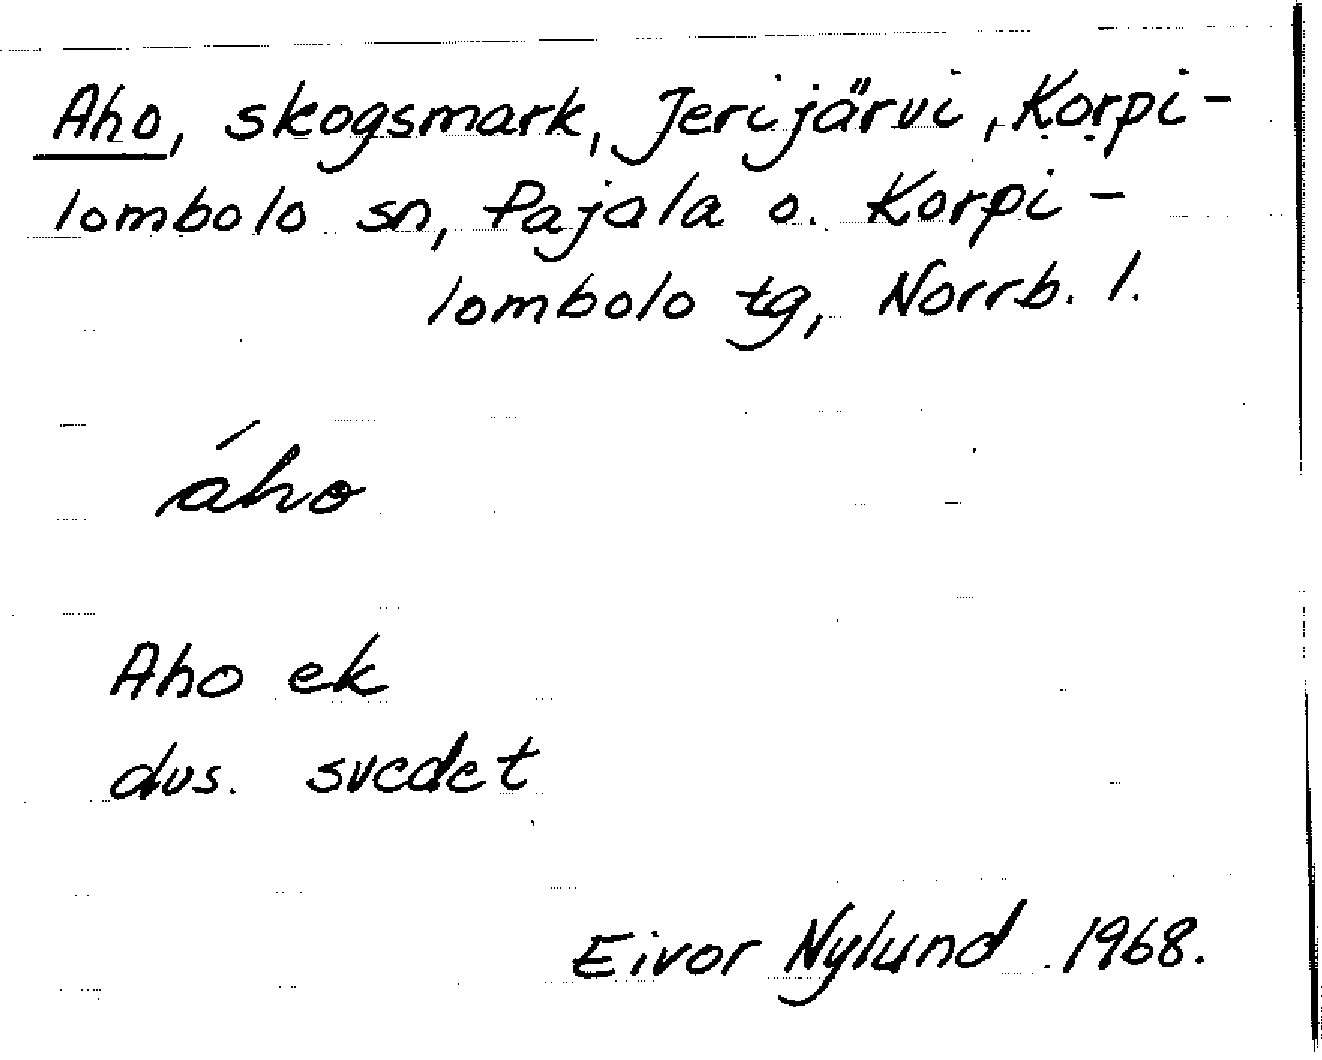 Aho, skogsmark, Jerijärvi, Korpi-
lombolo sn, Pajala o. Korpi-
lombolo tg, Norrb. l.
áho
Aho ek
dvs. svedet
Eivor Nylund 1968.